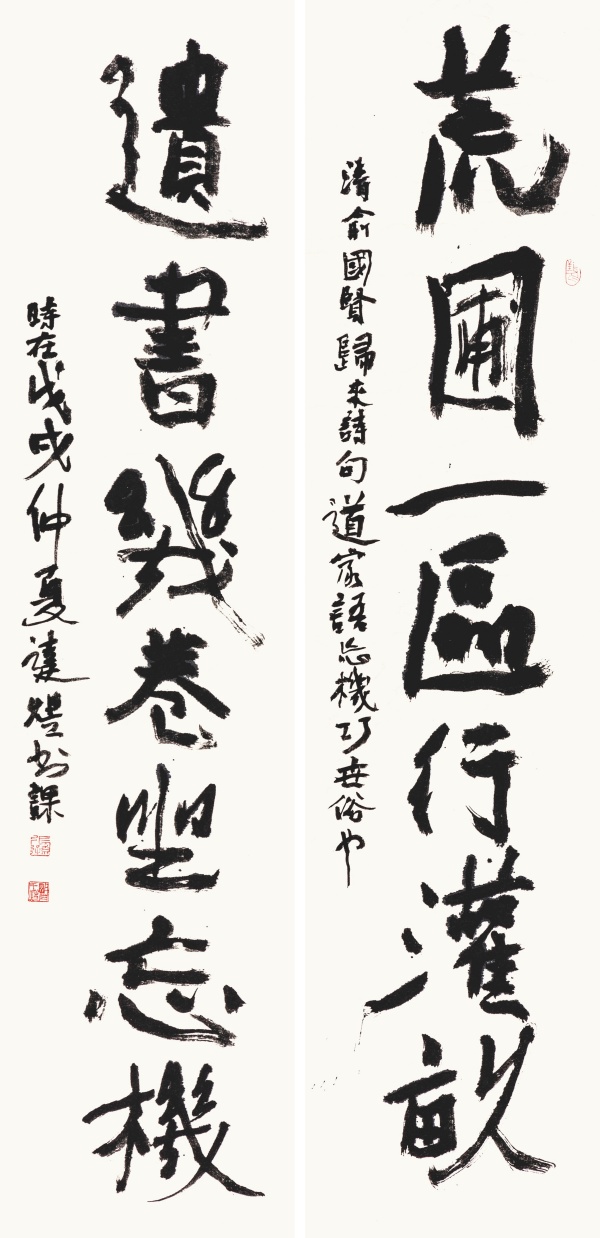 荒圃一區行灌畝
清俞國賢歸來詩句道家語忘機巧世俗也
遺書幾卷坐忘機
時在戊戌仲夏建煜書課